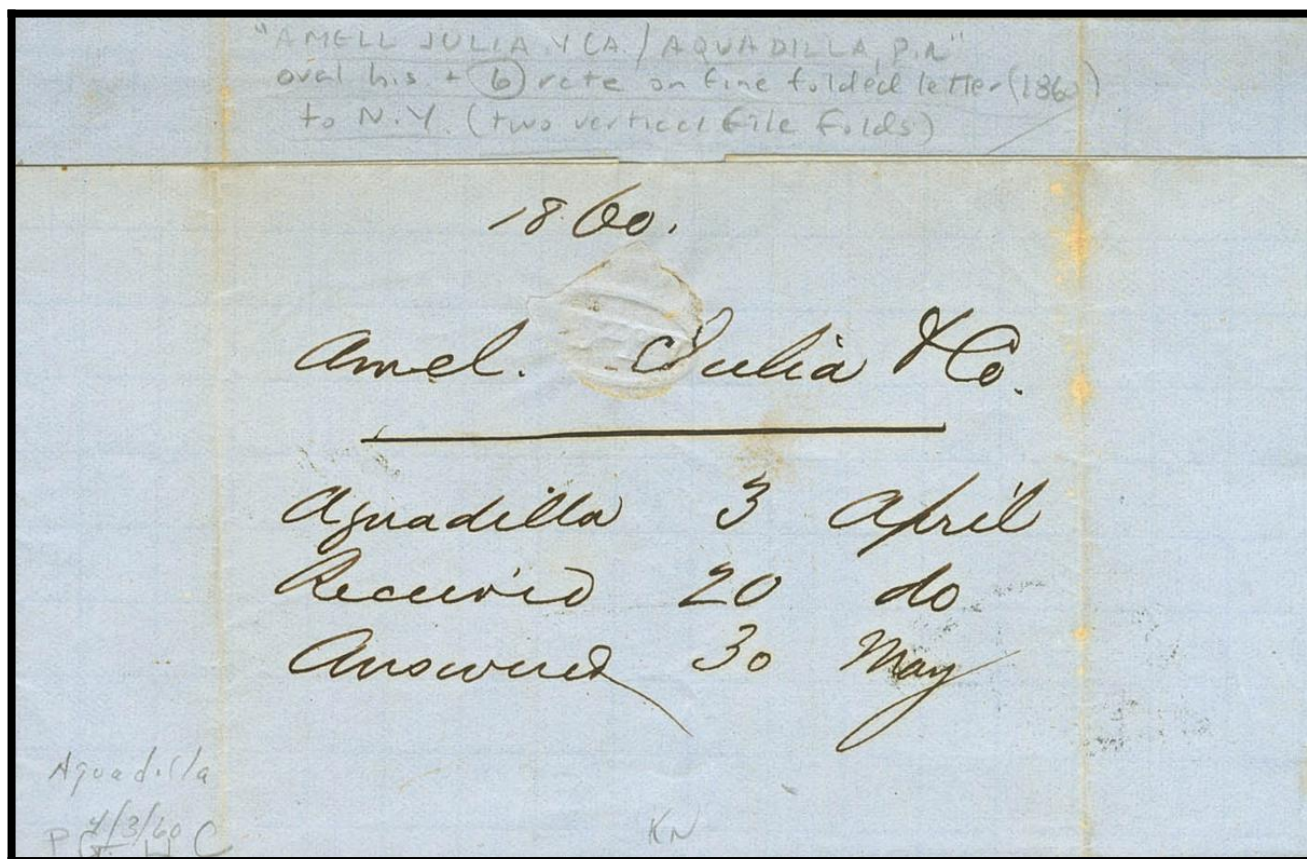 "AMELL JULIA Y CA. / AQUADILLA, P.R"
oval h.s. + (6) rate on fine folded letter (1860)
to N.Y. (two vertical file folds)
1860.
Amel. Julia & Co.
Aguadilla 3 April
Received 20 do
Answered 30 May
Aguadilla
4/3/60
KN